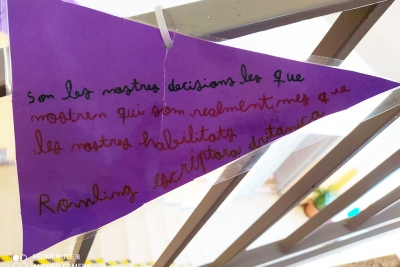 Son les nostres decisions les que
mostren qui som realment, mes que
les nostres habilitats
Rowling escriptora britanica
REDMI NOTE 8